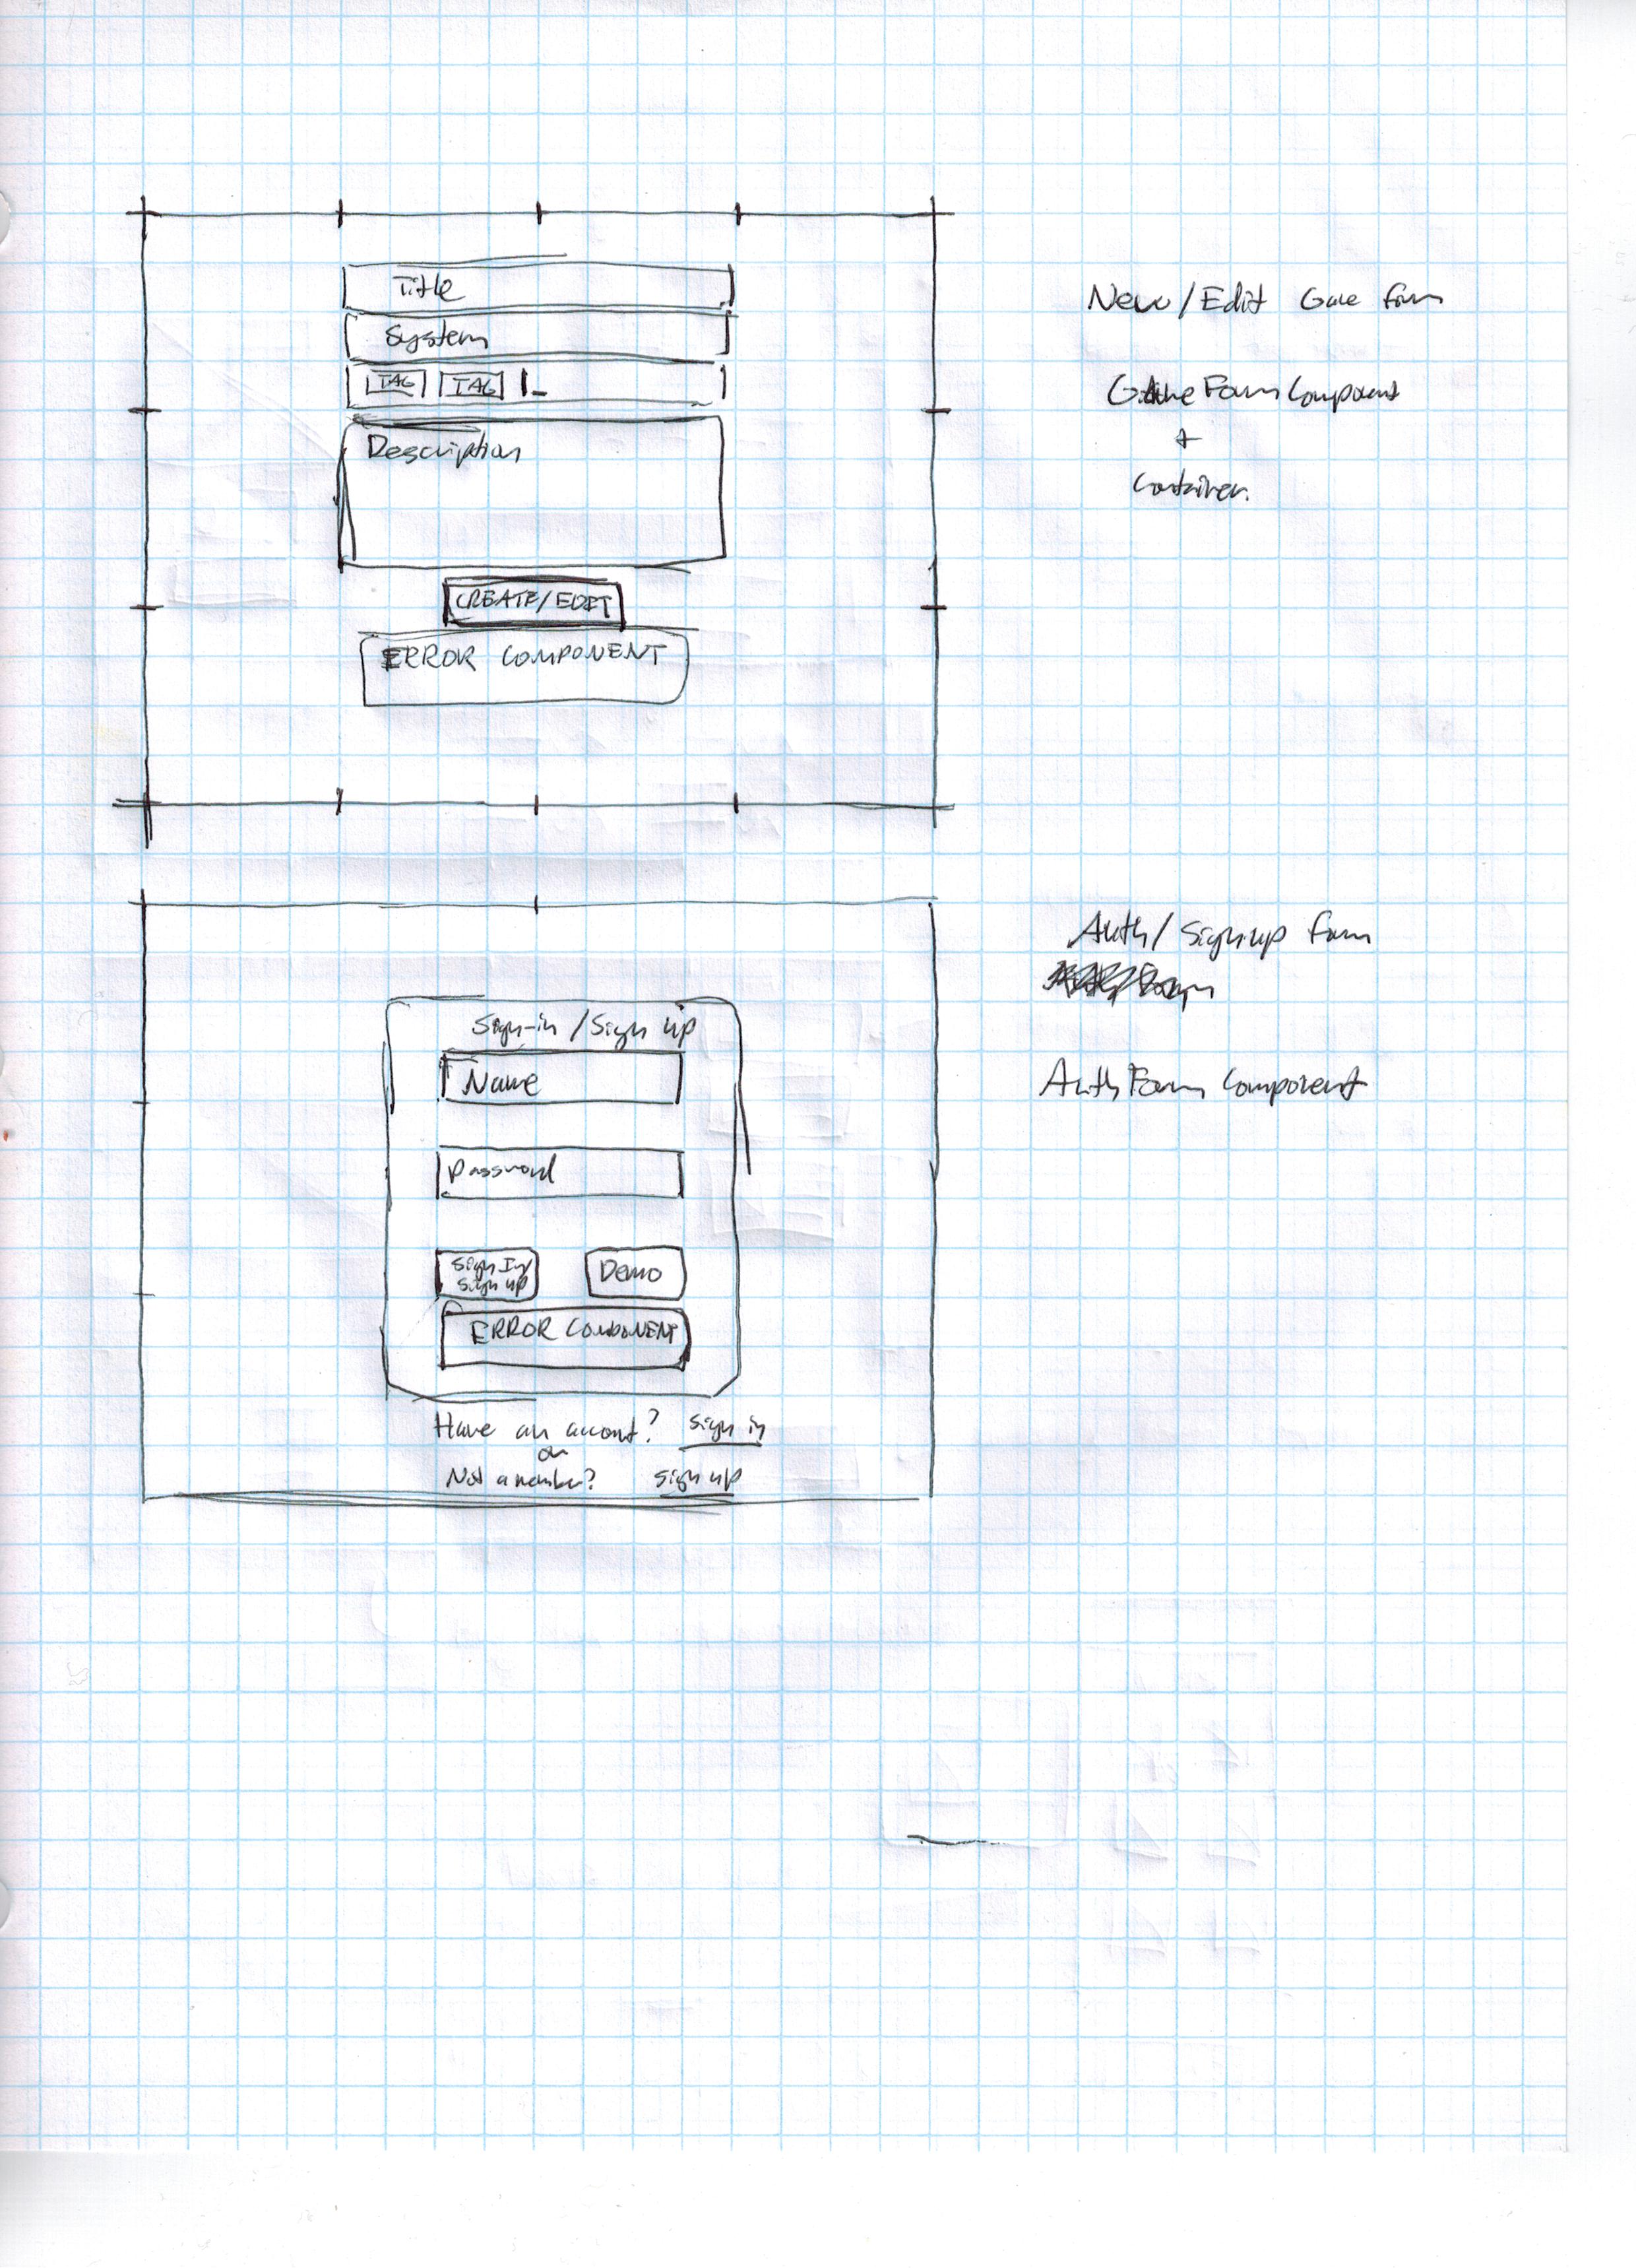 Title
System
TAG TAG
Description
CREATE/EDIT
ERROR COMPONENT
New/Edit Game Form
Game Form Component
+
Container.
Sign-in / Sign up
Name
Password
Sign In/
Sign up
Demo
ERROR COMPONENT
Have an account? Sign in
or
Not a member? Sign up
Auth/Signup Form
Auth Form Component